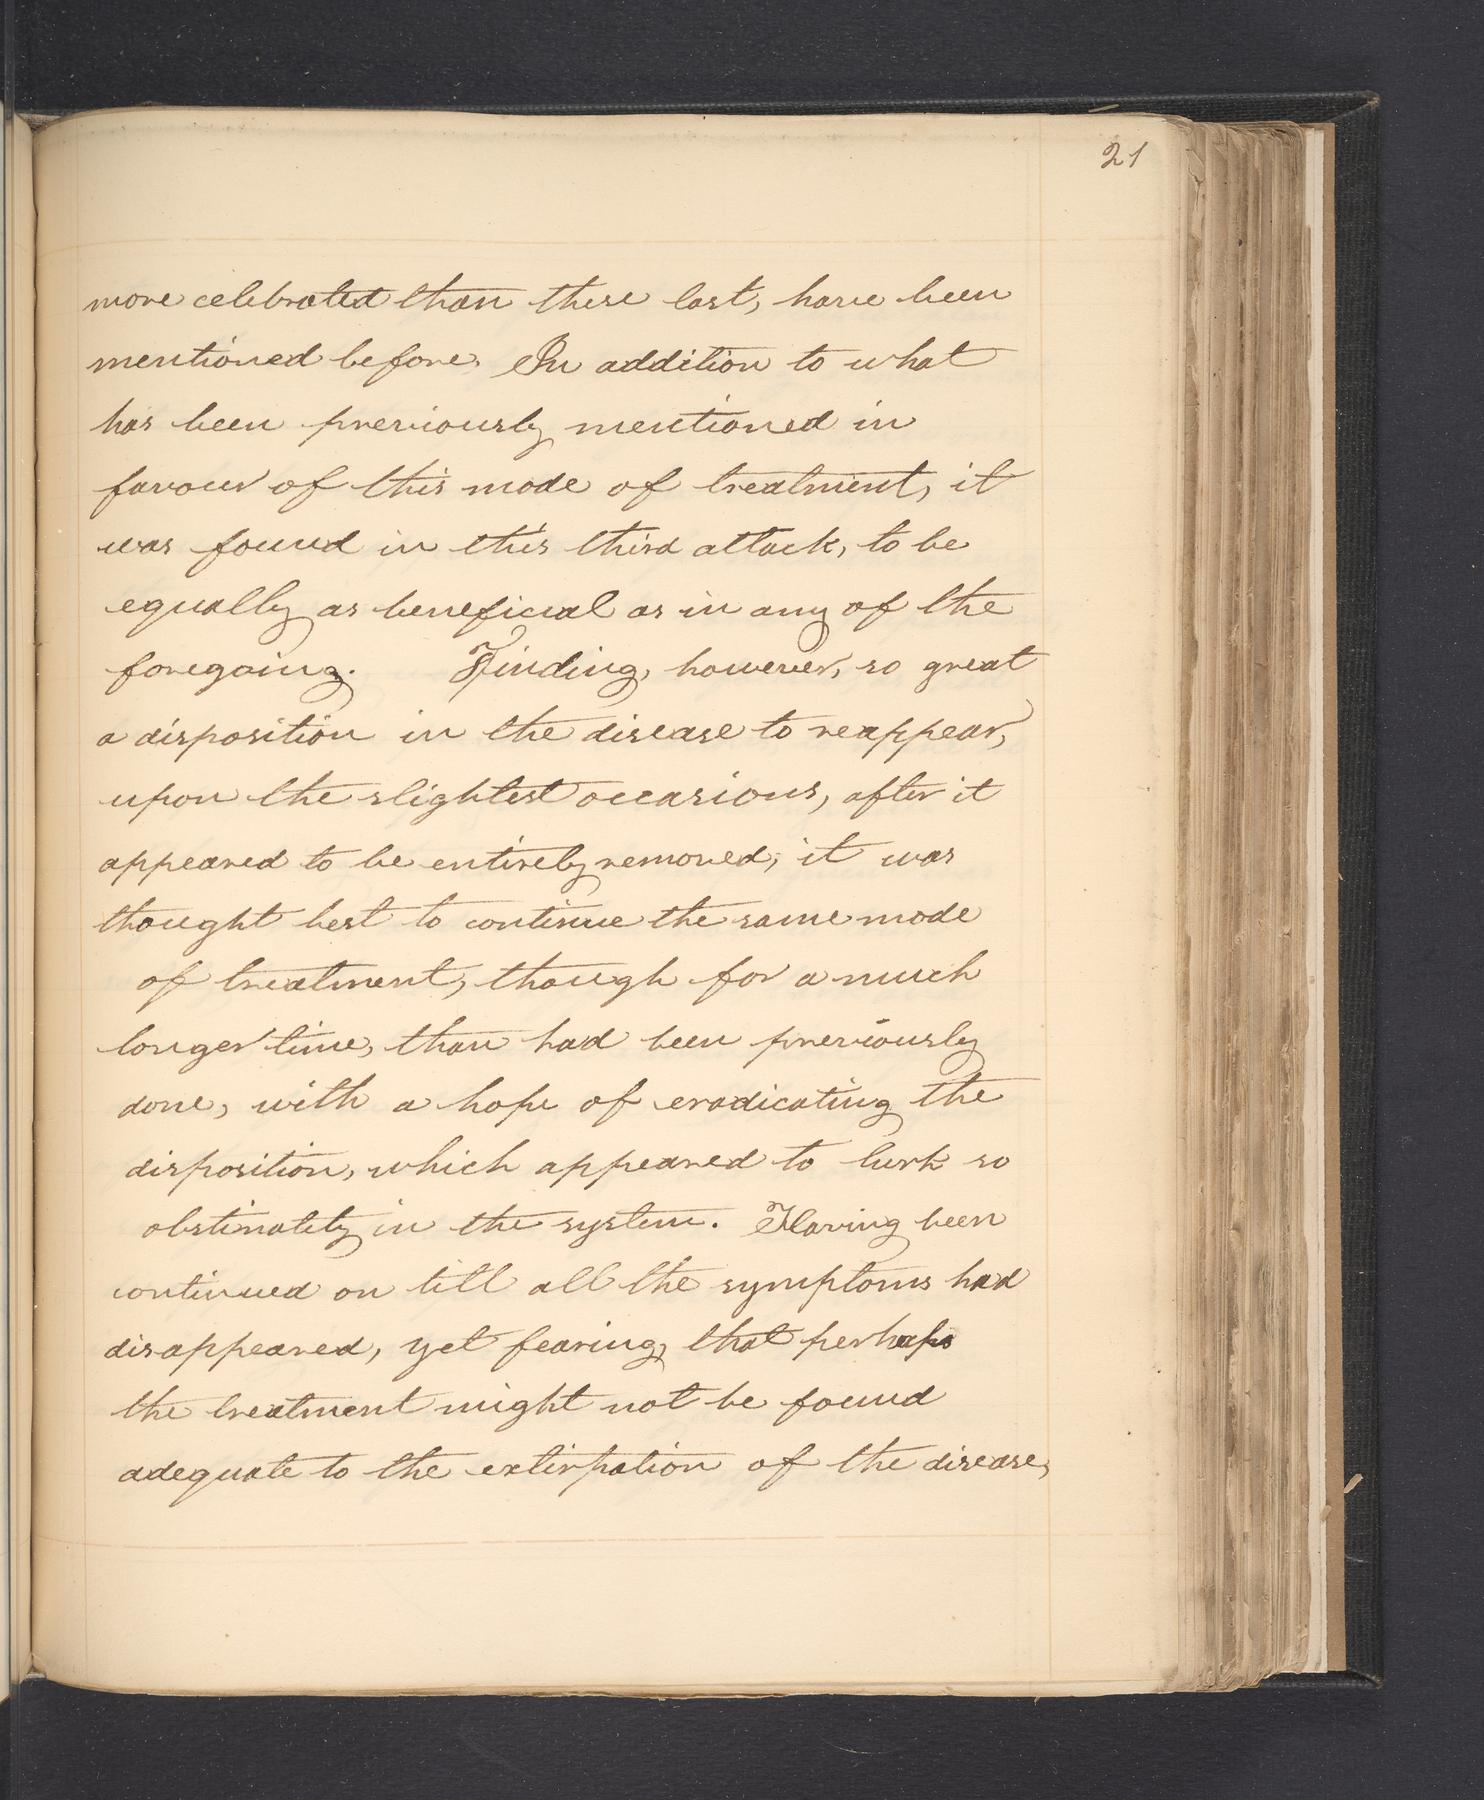 21
more celebrated than these last, have been
mentioned before. In addition to what
has been previously mentioned in
favour of this mode of treatment, it
was found in this third attack, to be
equally as beneficial as in any of the
foregoing. Finding, however, so great
a disposition in the disease to reappear,
upon the slightest occasions, after it
appeared to be entirely removed, it was
thought best to continue the same mode
of treatment, though for a much
longer time, than had been previously
done, with a hope of eradicating the
disposition, which appeared to lurk so
obstinately in the system. Having been
continued on till all the symptoms had
disappeared, yet fearing, that perhaps
the treatment might not be found
adequate to the extirpation of the disease,